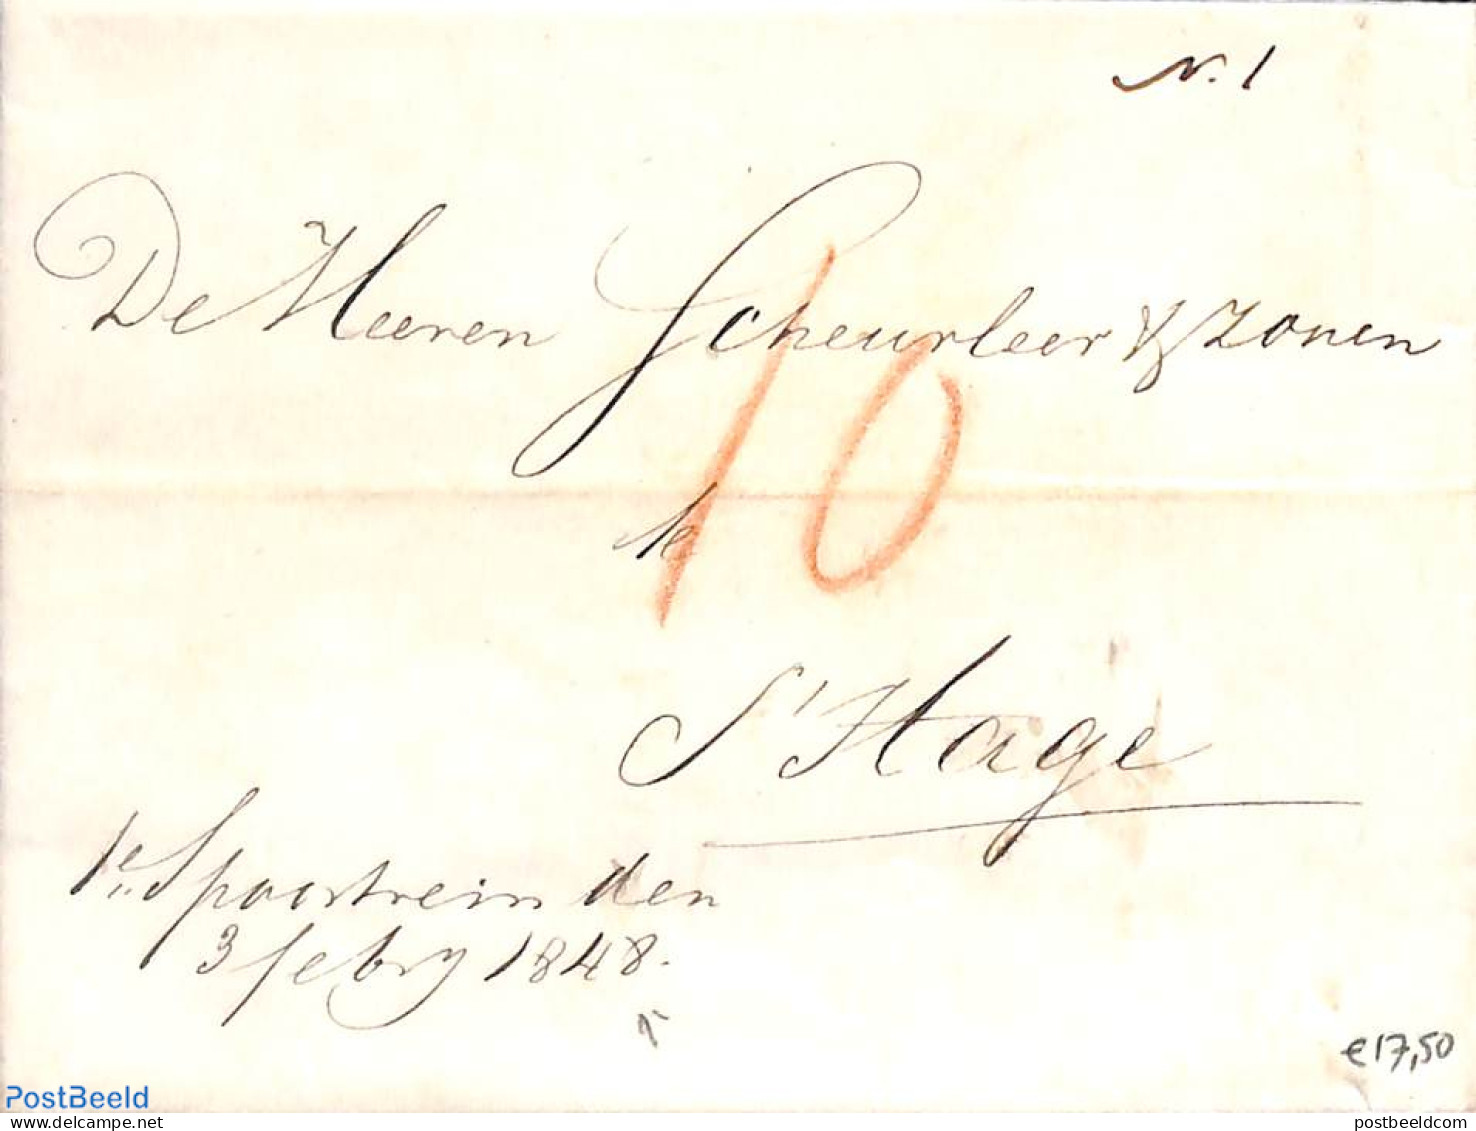 N. 1
De Heeren Scheurleer & Zonen
10
te
S'Hage
1e Spoortrein den
3 febry 1848.
€17,50
PostBeeld
www.postbeeld.com
postbeeldcom